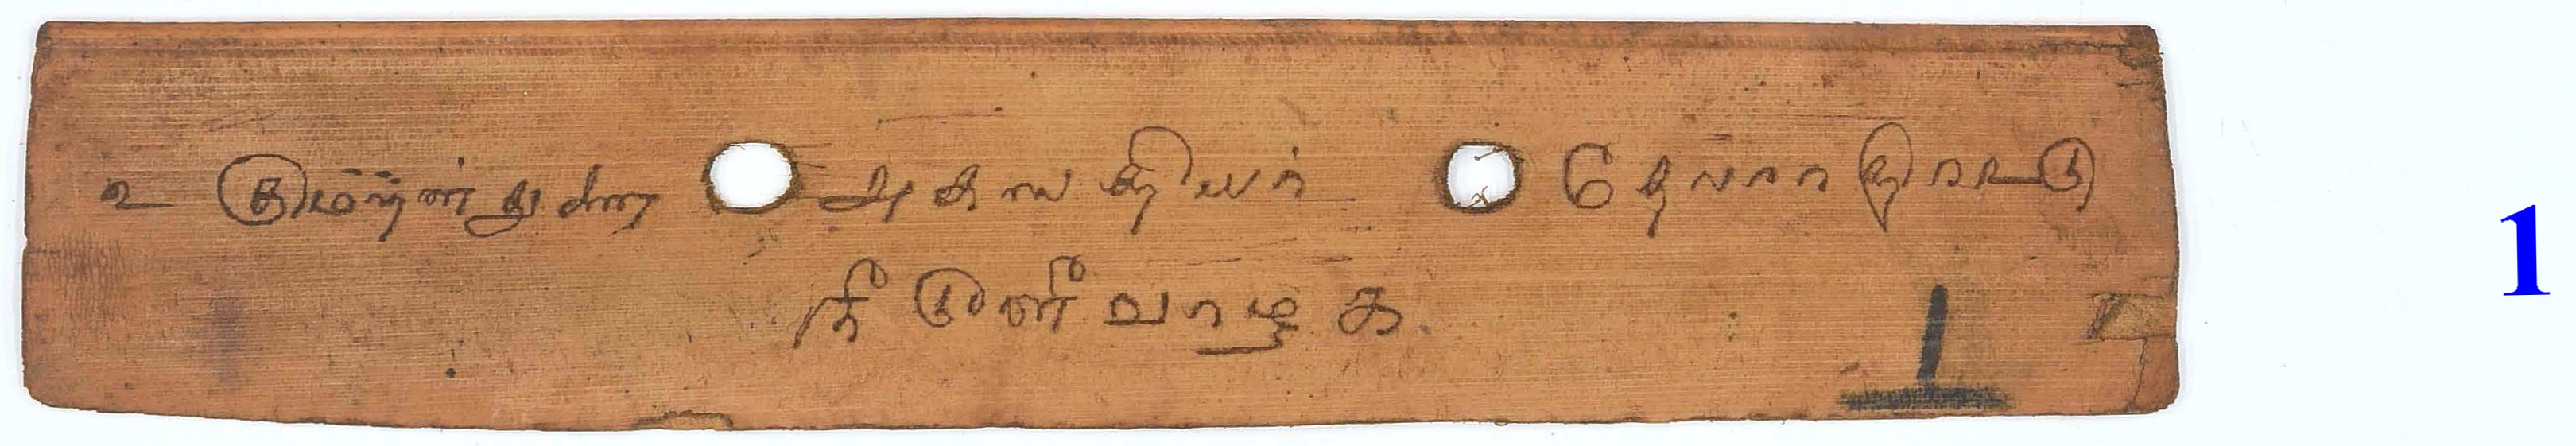 உ குமரன் துணை அகஸ்தியர் தேவாரத்திரட்டு
நீடூளி வாழ்க
1